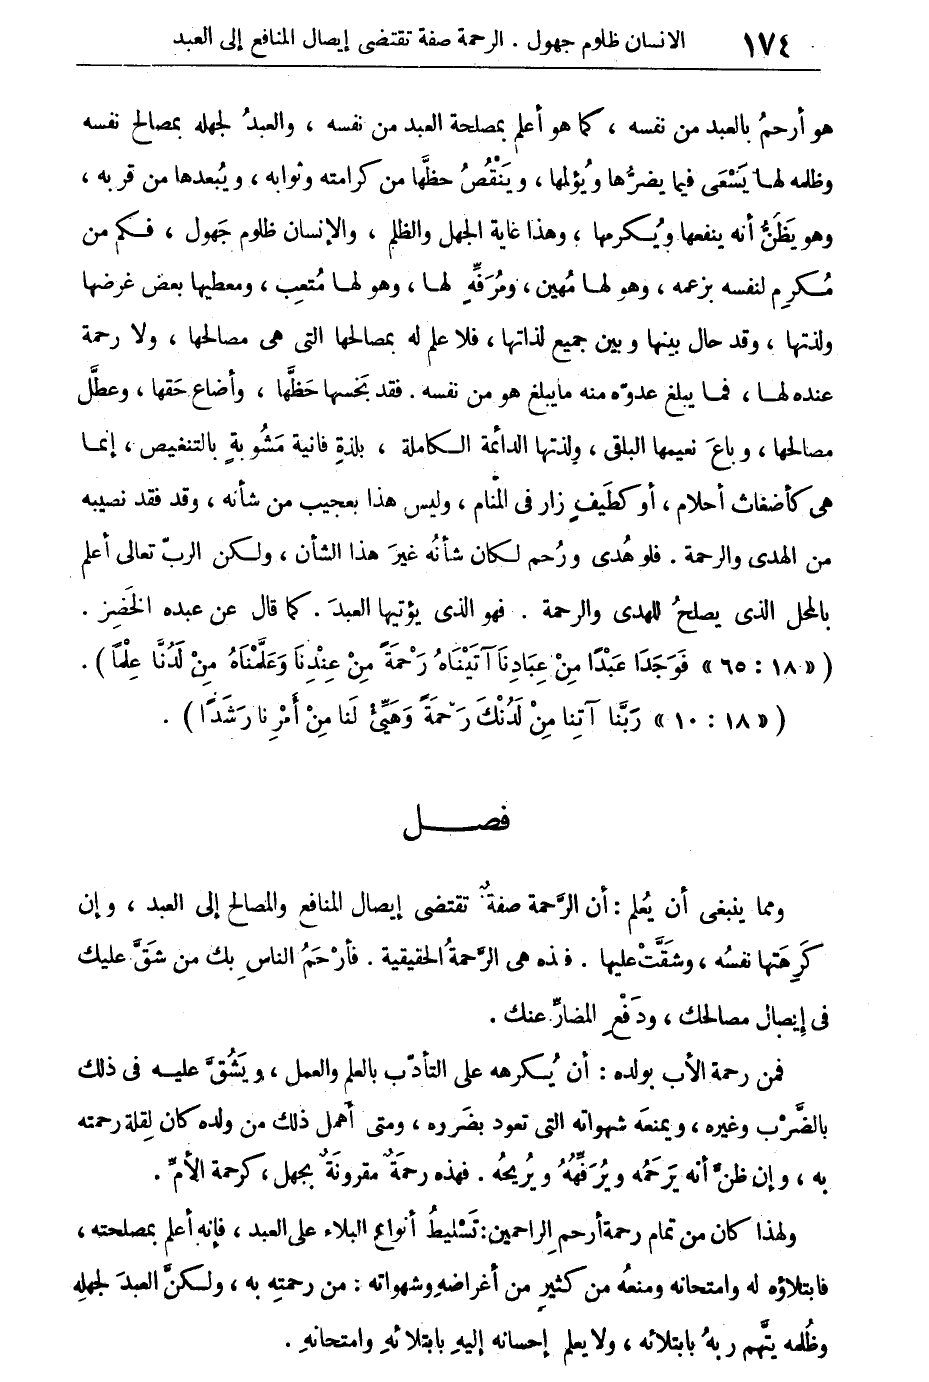 ١٧٤ الانسان ظلوم جهول . الرحمة صفة تقتضى إيصال المنافع إلى العبد
هو أرحمُ بالعبد من نفسه ، كما هو أعلم بمصلحة العبد من نفسه ، والعبدُ لجهله بمصالح نفسه
وظلمه لهـا يَسْعَى فيما يضرُّها ويُؤلمها ، ويَنْقُصُ حظَّها من كرامته وثوابه ، ويُبعدها من قربه ،
وهو يَظَنُّ أنه ينفعها ويُـكرمها ، وهذا غاية الجهل والظلم ، والإنسان ظلوم جَهول ، فـكم من
مُـكرِمٍ لنفسه بزعمه ، وهو لهـا مُهين ، ومُرَفِّهٍ لهـا ، وهو لهـا مُتعِب ، ومعطيها بعض غرضها
ولذتها ، وقد حال بينها وبين جميع لذاتها ، فلا علم له بمصالحها التى هى مصالحها ، ولا رحمة
عنده لهـا ، فمـا يبلغ عدوّه منه مايبلغ هو من نفسه . فقد بَخسها حَظَّها ، وأضاع حَقها ، وعطَّل
مصالحها ، وباعَ نعيمها الباقى ، ولذتها الدائمة الـكاملة ، بلذةٍ فانية مَشُوبةٍ بالتنغيص ، إنمـا
هى كأضغاث أحلام ، أو كطَيفٍ زار فى المنام ، وليس هذا بعجيب من شأنه ، وقد فقد نصيبه
من الهدى والرحمة . فلو هُدى ورُحم لـكان شأنُه غيرَ هذا الشأن ، ولـكن الربّ تعالى أعلم
بالمحل الذى يصلحُ للهدى والرحمة . فهو الذى يؤتيها العبدَ . كما قال عن عبده الخَضِرِ .
( « ١٨ : ٦٥ » فَوَجَدَا عَبْدًا مِنْ عِبَادِنَا آتَيْنَاهُ رَحْمَةً مِنْ عِنْدِنَا وَعَلَّمْنَاهُ مِنْ لَدُنَّا عِلْمًا ) .
( « ١٨ : ١٠ » رَبَّنَا آتِنا مِنْ لَدُنْكَ رَحْمَةً وَهَيِّئْ لَنا مِنْ أَمْرِنا رَشَدًا ) .
فصـــل
ومما ينبغى أن يُعلم : أن الرَّحمة صفةٌ تقتضى إيصال المنافع والمصالح إلى العبد ، وإن
كَرِهَتها نفسُه ، وشقَّتْ عليها . فهذه هى الرَّحمةُ الحقيقية . فأرْحَمُ الناسِ بك من شقَّ عليك
فى إيصال مصالحك ، ودَفْعِ المضارِّ عنك .
فمن رحمة الأب بولده : أن يُـكرهه على التأدّب بالعلم والعمل ، ويَشُقَّ عليـه فى ذلك
بالضَّرْب وغيره ، ويمنعَه شهواته التى تعود بضَرره ، ومتى أهمل ذلك من ولده كان لِقلة رحمته
به ، وإن ظنَّ أنه يَرَحَمُه ويُرَفِّهُهُ ويُريحُه . فهذه رحمَةٌ مقرونَةٌ بجهل ، كرحمة الأمّ .
ولهذا كان من تمام رحمة أرحم الراحمين : تَسْليطُ أنواع البلاء على العبد ، فإنه أعلم بمصلحته ،
فابتلاؤه له وامتحانه ومنعُه من كثيرٍ من أغراضهِ وشهواته : من رحمتِه به ، ولـكنَّ العبدَ لجهلِهِ
وظُلمه يتَّهم ربهُ بابتلائه ، ولا يعلم إحسانه إليهِ بابتلائهِ وامتحانهِ .